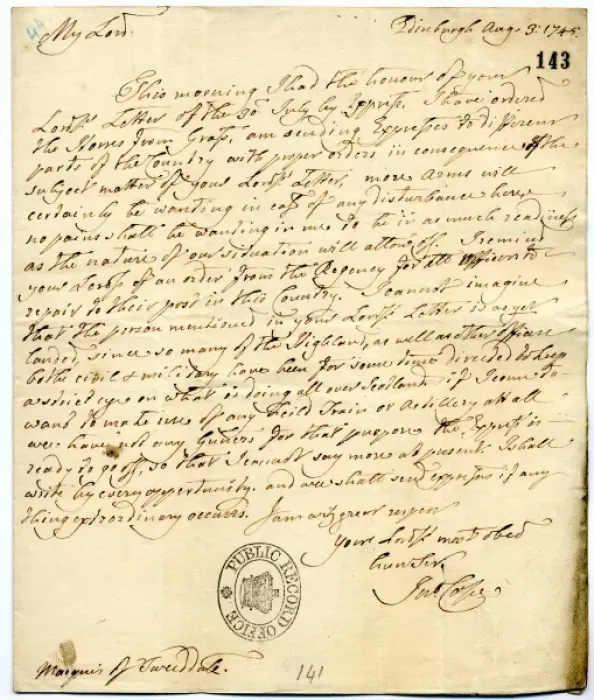 44
My Lord.
Edinburgh Aug. 3: 1745.
143
This morning I had the honour of your
Lordps Letter of the 30 July by Express. I have ordered
the Horses from Grass, am sending Expresses to different
parts of the Country with proper orders in consequence of the
subject matter of your Lordps Letter, more Arms will
certainly be wanting in case of any disturbance here,
no pains shall be wanting in me to be in as much readiness
as the nature of our situation will allow off. I remind
your Lordp of an order from the Regency for all officers to
repair to their post in this Country. I cannot imagine
that the person mentioned in your Lordps Letter is as yet
landed, since so many of the Highland, as well as other officers
both civil & military have been for some time directed to keep
a strict eye on what is doing all over Scotland. if I come to
want to make use of any Feild Train or Artillery at all
we have not any Guners for that purpose. the Express is
ready to go off, so that I cannot say more at present. I shall
write by every opportunity. and we shall send expresses if any
thing extrordinary occurrs. I am with great respect
your Lordps most obed
hum Ser.
Jno. Cope
PUBLIC RECORD OFFICE
Marquis of Tweeddale.
141